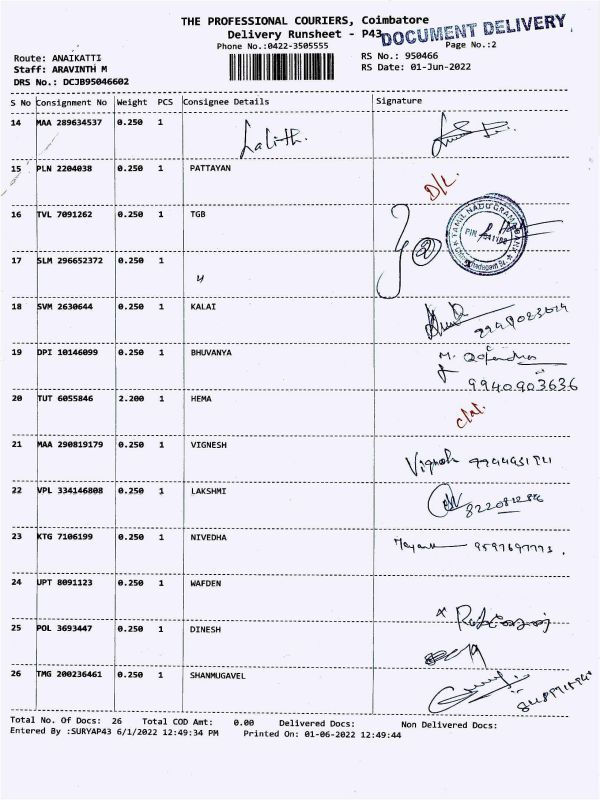 THE PROFESSIONAL COURIERS, Coimbatore
Delivery Runsheet - P43
DOCUMENT DELIVERY
Phone No.:0422-3505555
Page No.:2
Route: ANAIKATTI
RS No.: 950466
Staff: ARAVINTH M
RS Date: 01-Jun-2022
DRS No.: DCJB95046602
S No Consignment No Weight PCS Consignee Details Signature
14 MAA 289634537 0.250 1 Lalith
15 PLN 2204038 0.250 1 PATTAYAN D/L
16 TVL 7091262 0.250 1 TGB
TAMIL NADU GRAMA BANK
PIN
17 SLM 296652372 0.250 1
18 SVM 2630644 0.250 1 KALAI
19 DPI 10146099 0.250 1 BHUVANYA M.
9940903636
20 TUT 6055846 2.200 1 HEMA
21 MAA 290819179 0.250 1 VIGNESH Vignesh
22 VPL 334146808 0.250 1 LAKSHMI
23 KTG 7106199 0.250 1 NIVEDHA 9597697773.
24 UPT 8091123 0.250 1 WAFDEN
25 POL 3693447 0.250 1 DINESH
26 TMG 200236461 0.250 1 SHANMUGAVEL
Total No. Of Docs: 26 Total COD Amt: 0.00 Delivered Docs: Non Delivered Docs:
Entered By :SURYAP43 6/1/2022 12:49:34 PM Printed On: 01-06-2022 12:49:44